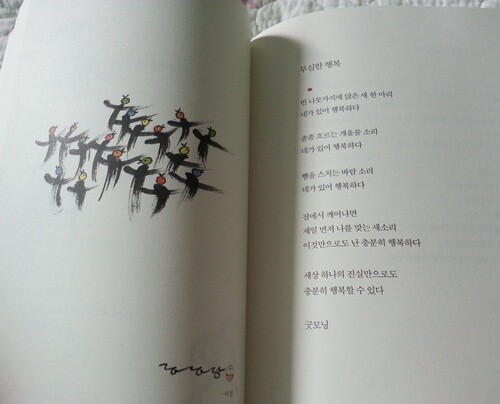 무심한 행복
빈 나뭇가지에 앉은 새 한 마리
네가 있어 행복하다
졸졸 흐르는 개울물 소리
네가 있어 행복하다
뺨을 스치는 바람 소리
네가 있어 행복하다
잠에서 깨어나면
제일 먼저 나를 맞는 새소리
이것만으로도 난 충분히 행복하다
세상 하나의 진실만으로도
충분히 행복할 수 있다
굿모닝